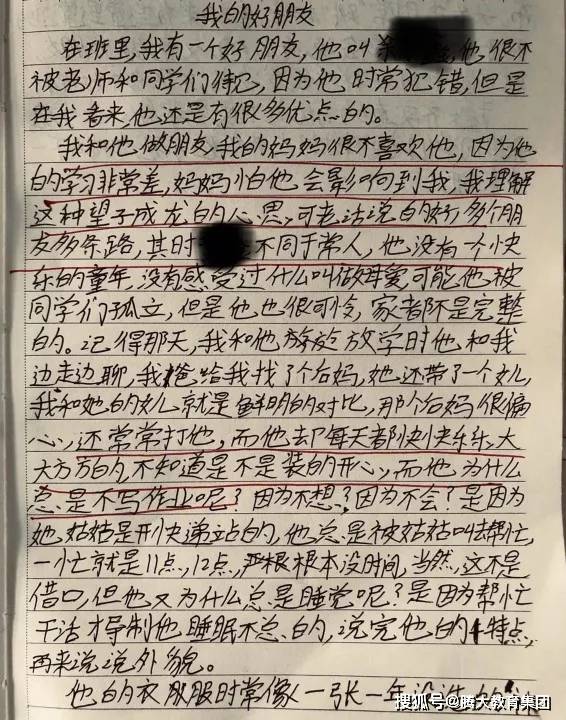 我的好朋友
在班里,我有一个好朋友,他叫 他很不
被老师和同学们待见,因为他时常犯错,但是
在我看来他还是有很多优点的。
我和他做朋友,我的妈妈很不喜欢他,因为他
的学习非常差,妈妈怕他会影响到我,我理解
这种望子成龙的心思,可老话说的好,多个朋
友多条路,其时 不同于常人,他没有一个快
乐的童年,没有感受过什么叫做母爱可能他被
同学们孤立,但是他也很可怜,家都不是完整
的。记得那天,我和他放学时他和我
边走边聊,我爸给我找了个后妈,她还带了一个女儿
我和她的女儿就是鲜明的对比,那个后妈很偏
心,还常常打他,而他却每天都快快乐乐,大
大方方的,不知道是不是装的开心,而他为什么
总是不写作业呢?因为不想?因为不会?是因为
她姑姑是开快递站的,他总是被姑姑叫去帮忙,
一忙就是11点,12点,根本没时间,当然,这不是
借口,但他又为什么总是睡觉呢?是因为帮忙
干活才导制他睡眠不总的,说完他的特点,
再来说说外貌。
他的衣服时常像一张一年没洗
搜狐号@腾大教育集团